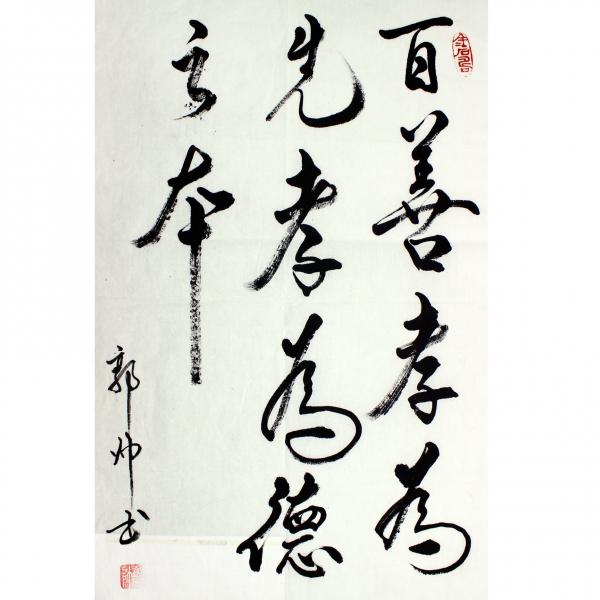 百善孝為
先孝為德
之本
郭帅书